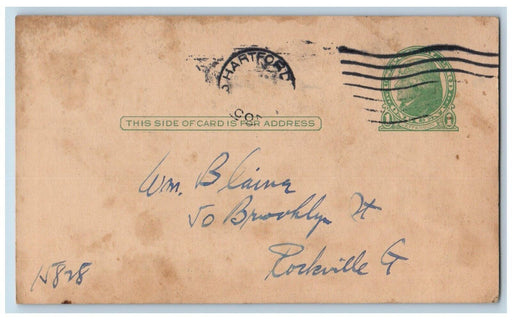 HARTFORD
CO
THIS SIDE OF CARD IS FOR ADDRESS
1 1
Wm. Blaina
50 Brooklyn St
Rockville Ct
15828